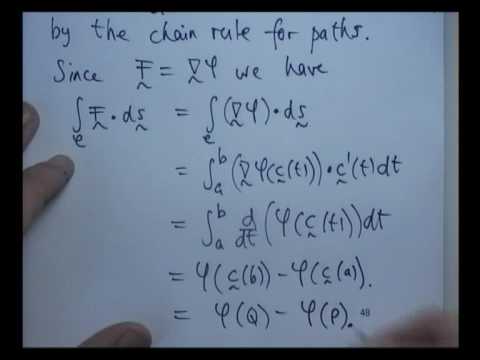 by the chain rule for paths.
Since F̰ = ∇̰φ we have
∫_C F̰ · ds̰ = ∫_C (∇̰φ) · ds̰
= ∫_a^b (∇̰φ(c̰(t))) · c̰'(t) dt
= ∫_a^b d/dt (φ(c̰(t))) dt
= φ(c̰(b)) − φ(c̰(a)).
= φ(Q) − φ(P). 48